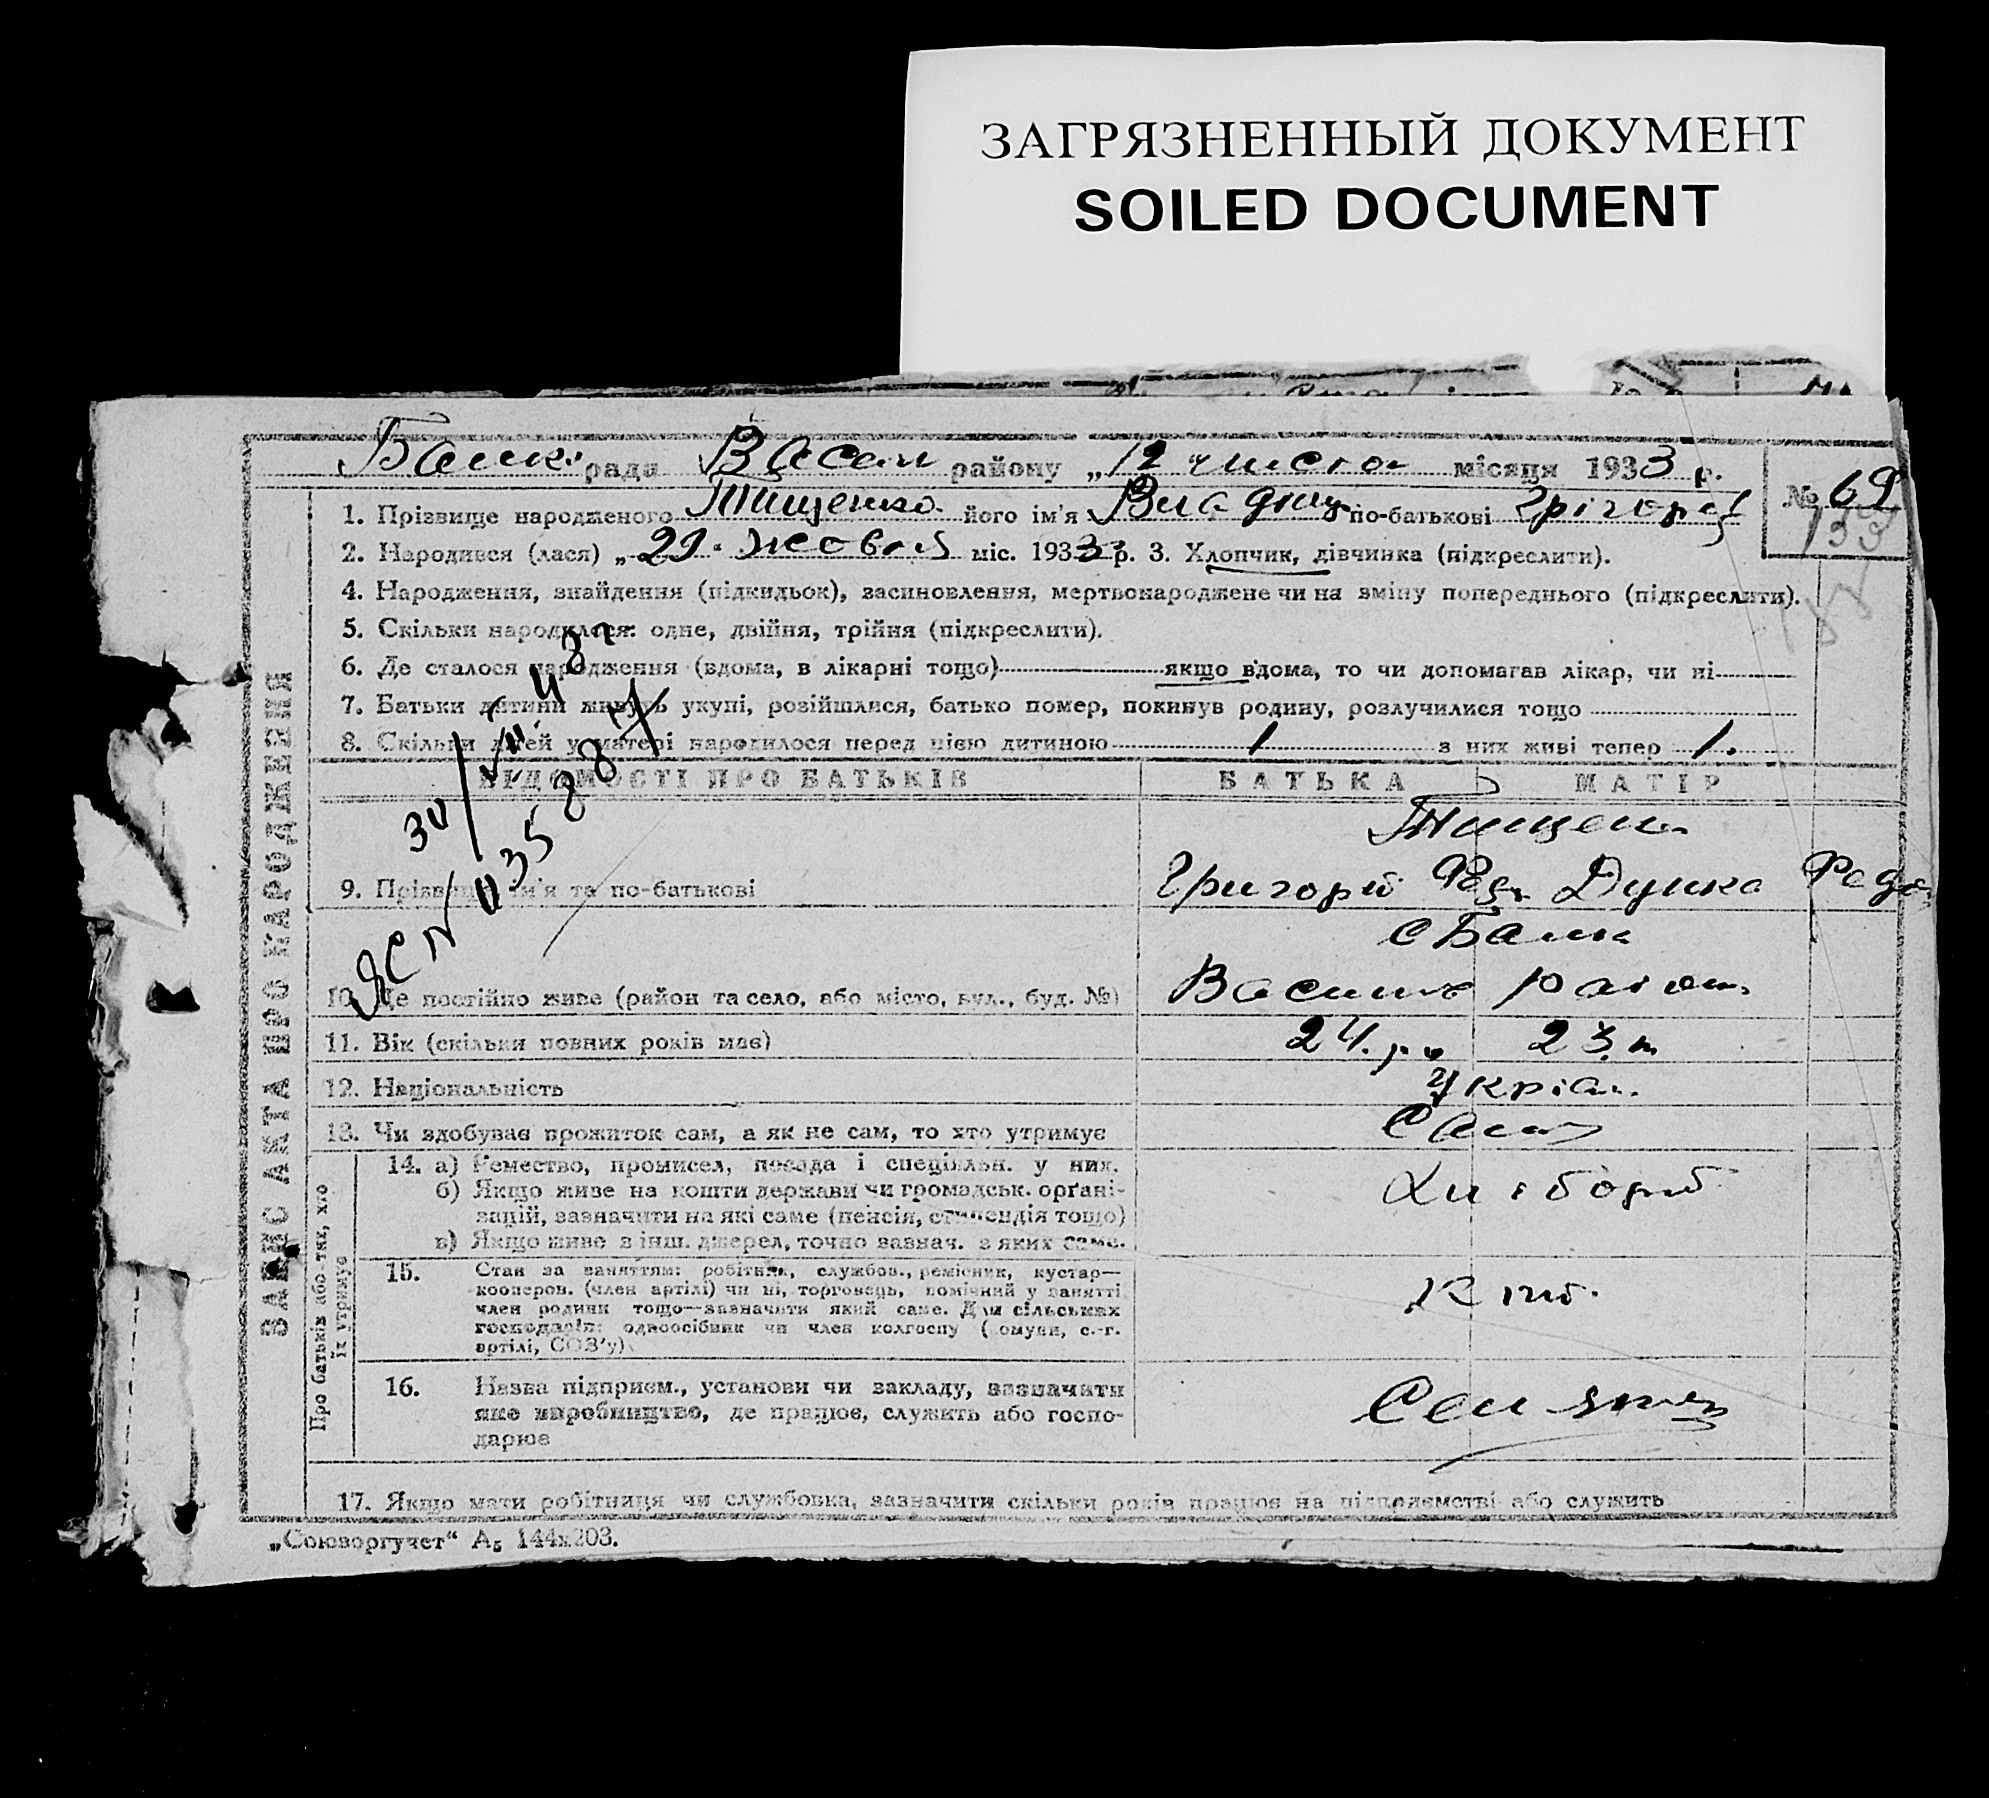 ЗАГРЯЗНЕННЫЙ ДОКУМЕНТ
SOILED DOCUMENT
рада Васил району „12 числа місяця 1933 р.
№ 69
1. Прізвище народженого Тищенко його ім'я по-батькові Грігорів
2. Народився (лася) „29. жовтня міс. 1933 р. 3. Хлопчик, дівчинка (підкреслити).
4. Народження, знайдення (підкидьок), засиновлення, мертвонароджене чи на зміну попереднього (підкреслити).
5. Скільки народилося: одне, двійня, трійня (підкреслити).
6. Де сталося народження (вдома, в лікарні тощо) якщо вдома, то чи допомагав лікар, чи ні
7. Батьки дитини живуть укупі, розійшлися, батько помер, покинув родину, розлучилися тощо
8. Скільки дітей у матері народилося перед цією дитиною 1 з них живі тепер 1.
ВІДОМОСТІ ПРО БАТЬКІВ БАТЬКА МАТІР
9. Прізвище ім'я та по-батькові Григорій Фед. Дунка Федо
10. Де постійно живе (район та село, або місто, вул., буд. №) Василь район
11. Вік (скільки повних років має) 24. р. 23.
12. Національність Украін.
13. Чи здобуває прожиток сам, а як не сам, то хто утримує Сам
Про батьків або тих, хто їх утримує
14. а) Ремество, промисел, посада і спеціяльн. у них.
б) Якщо живе на кошти держави чи громадськ. орґані-
зацій, зазначити на які саме (пенсія, стипендія тощо)
в) Якщо живе з інш. джерел, точно зазнач. з яких саме.
Хлібороб
15. Стан за заняттям: робітник, службов., ремісник, кустар—
кооперов. (член артілі) чи ні, торговець, помічний у занятті
член родини тощо—зазначити який саме. Для сільських
господарів: одноосібник чи член колгоспу (комуни, с.-г.
артілі, СОЗ'у)
16. Назва підприєм., установи чи закладу, зазначити
яке виробництво, де працює, служить або госпо-
дарює
17. Якщо мати робітниця чи службовка, зазначити скільки років працює на підприємстві або служить
ЗАПИС АКТА ПРО НАРОДЖЕННЯ
„Союзоргучет“ А5 144х203.